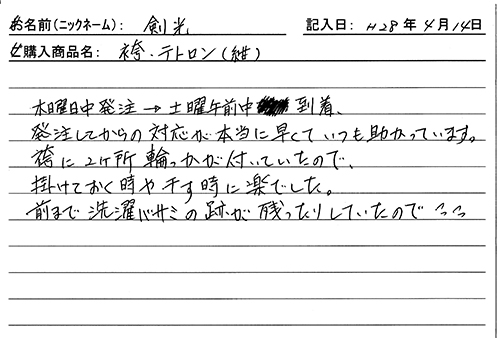 お名前(ニックネーム): 剣光 記入日: H28年4月14日
ご購入商品名: 袴・テトロン(紺)
水曜日中発注→土曜午前中到着、
発注してからの対応が本当に早くていつも助かっています。
袴に2ヶ所輪っかが付いていたので、
掛けておく時や干す時に楽でした。
前まで洗濯バサミの跡が残ったりしていたので